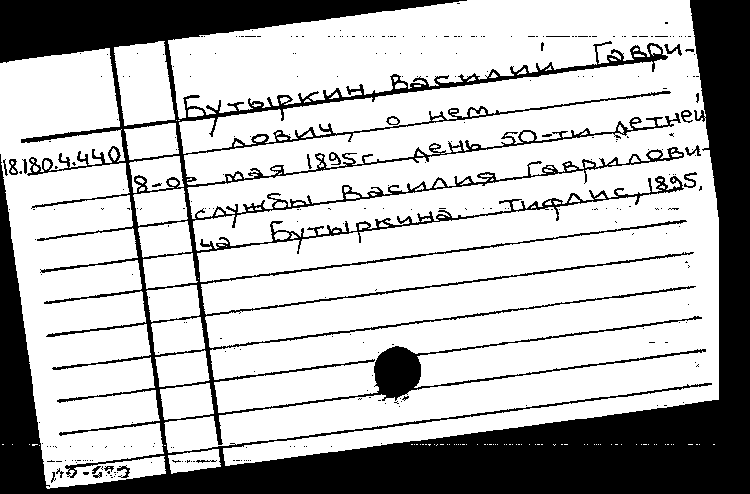 Бутыркин, Василий Гаври-
лович, о нем.
18.180.4.440
8-ое мая 1895г. День 50-ти летней
службы Василия Гаврилови-
ча Бутыркина. Тифлис, 1895.